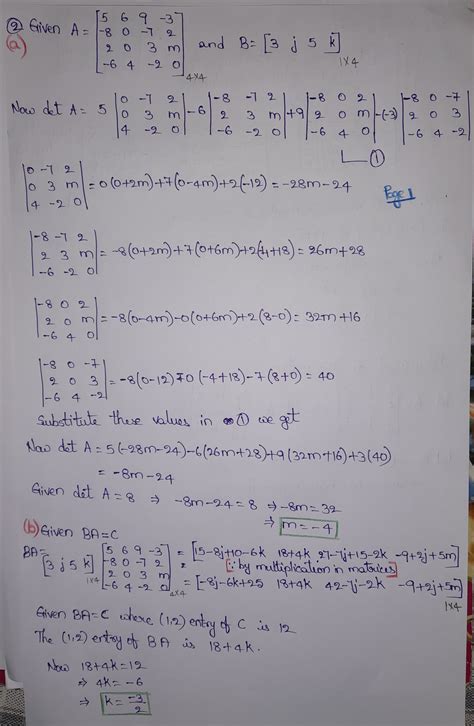 ② Given A = [5 6 9 -3; -8 0 -7 2; 2 0 3 m; -6 4 -2 0] 4×4 and B = [3 j 5 k] 1×4
(a)
Now det A = 5 |0 -7 2; 0 3 m; 4 -2 0| -6 |-8 -7 2; 2 3 m; -6 -2 0| +9 |-8 0 2; 2 0 m; -6 4 0| -(-3) |-8 0 -7; 2 0 3; -6 4 -2|
①
|0 -7 2; 0 3 m; 4 -2 0| = 0(0+2m)+7(0-4m)+2(-12) = -28m-24
Page 1
|-8 -7 2; 2 3 m; -6 -2 0| = -8(0+2m)+7(0+6m)+2(-4+18) = 26m+28
|-8 0 2; 2 0 m; -6 4 0| = -8(0-4m)-0(0+6m)+2(8-0) = 32m+16
|-8 0 -7; 2 0 3; -6 4 -2| = -8(0-12)-0(-4+18)-7(8+0) = 40
Substitute these values in ① we get
Now det A = 5(-28m-24)-6(26m+28)+9(32m+16)+3(40)
= -8m-24
Given det A = 8 ⇒ -8m-24=8 ⇒ -8m=32
⇒ m = -4
(b) Given BA=C
BA = [3 j 5 k] 1×4 [5 6 9 -3; -8 0 -7 2; 2 0 3 m; -6 4 -2 0] 4×4 = [15-8j+10-6k 18+4k 27-7j+15-2k -9+2j+5m]
[∵ by multiplication in matrices]
= [-8j-6k+25 18+4k 42-7j-2k -9+2j+5m] 1×4
Given BA=C where (1,2) entry of C is 12
The (1,2) entry of BA is 18+4k.
Now 18+4k=12
⇒ 4k=-6
⇒ k = -3/2